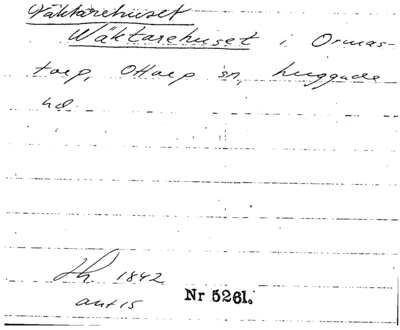 Väktarehuset
Wäktarehuset i Ormas-
torp, Ottarp sn, Luggude
hd.
Fh 1842
ant 15
Nr 5261.